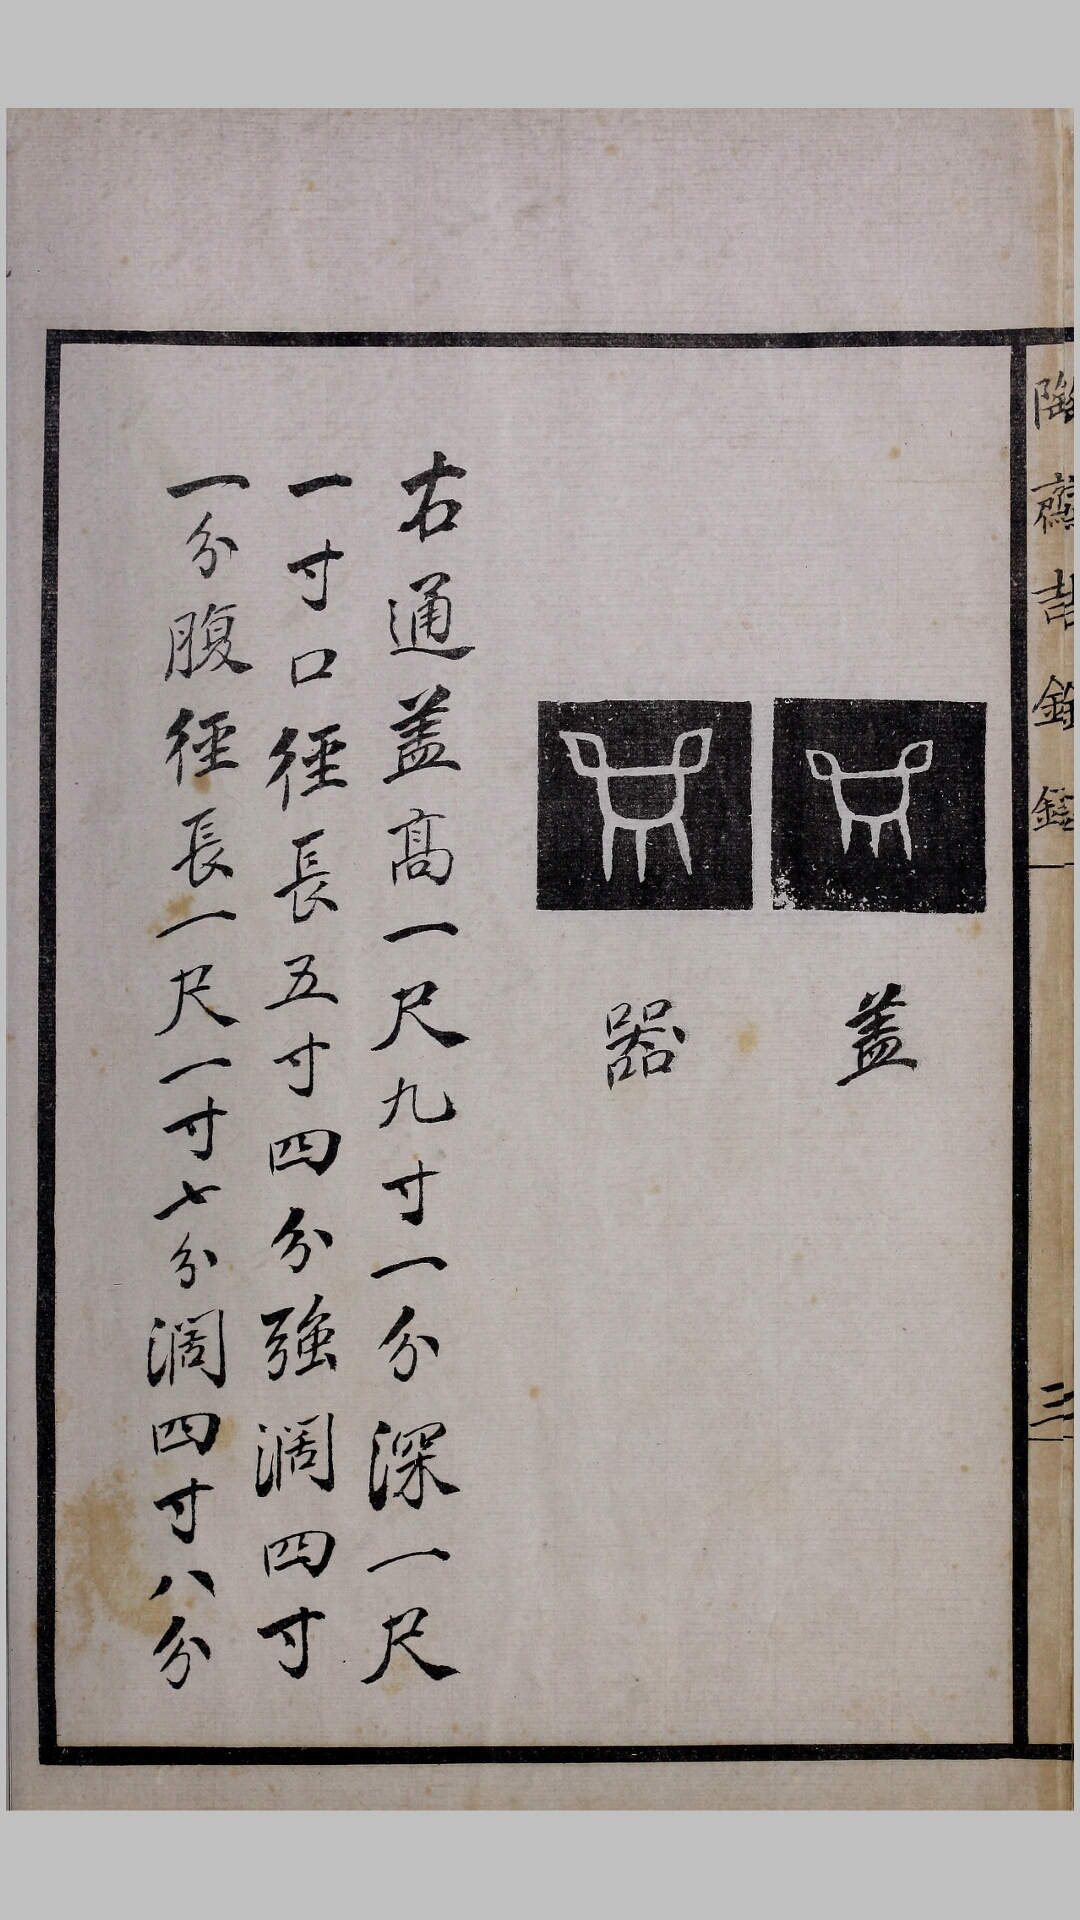 陶齋吉金錄
三
蓋
器
右通蓋高一尺九寸一分深一尺
一寸口徑長五寸四分強濶四寸
一分腹徑長一尺一寸七分濶四寸八分